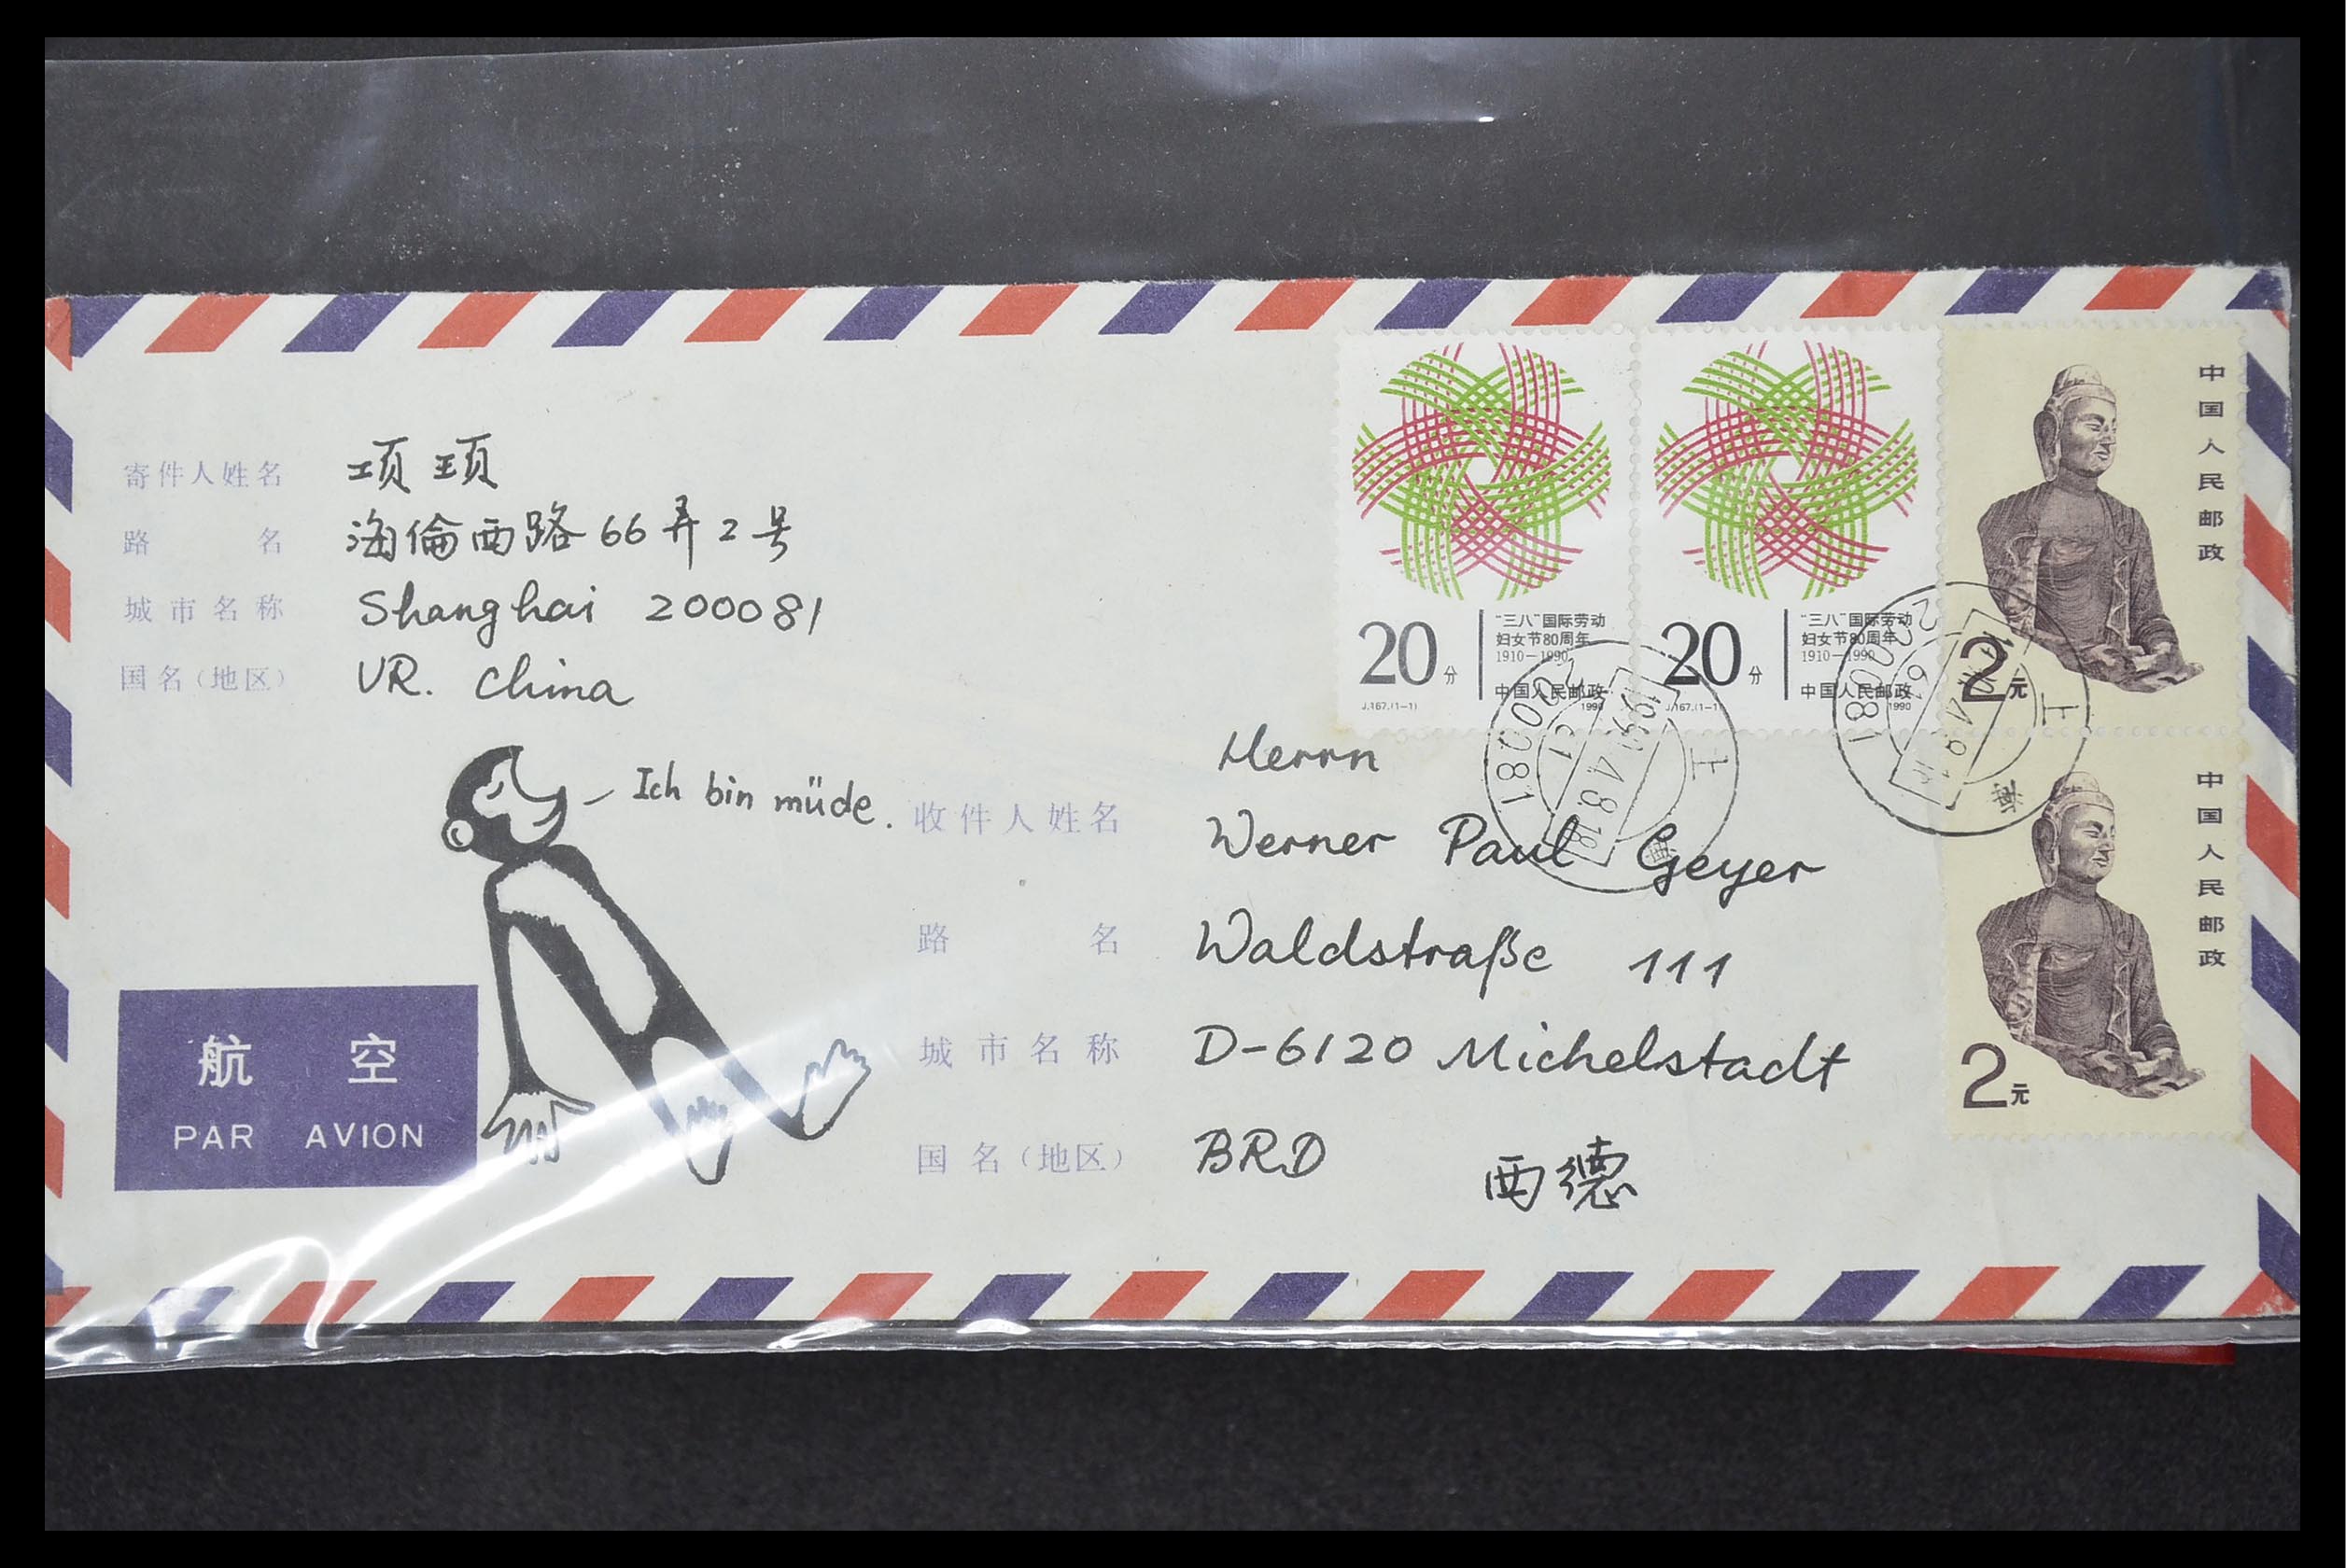 寄件人姓名 项顼
路 名 海倫西路66弄2号
城市名称 Shanghai 200081
国名(地区) VR. China
Ich bin müde.
航 空
PAR AVION
20分
"三八"国际劳动
妇女节80周年
1910-1990
中国人民邮政
J.167.(1-1) 1990
20分
"三八"国际劳动
妇女节80周年
1910-1990
中国人民邮政
J.167.(1-1) 1990
中国人民邮政
2元
中国人民邮政
2元
上
200081
上
200081
Herrn
收件人姓名 Werner Paul Geyer
路 名 Waldstraße 111
城市名称 D-6120 Michelstadt
国名(地区) BRD 西德